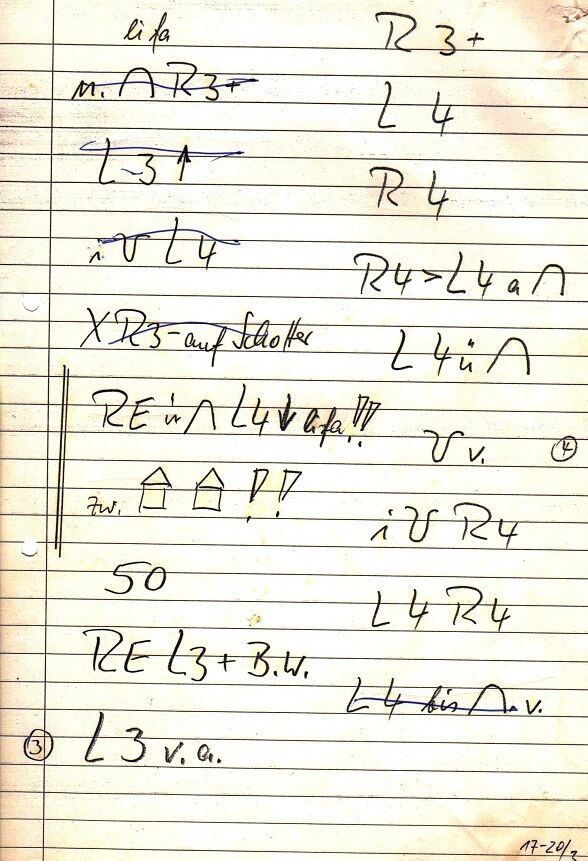 lifa
n. ∩ R3+
L-3 ↑
i V L4
X R3- auf Schotter
RE ü ∩ L4 ↓ lifa!!
zw. !!
50
RE L3+ B.W.
③ L3 v.a.
R 3+
L 4
R 4
R4>L4 a ∩
L 4 ü ∩
V v. ④
i V R4
L4 R4
L4 bis ∩. v.